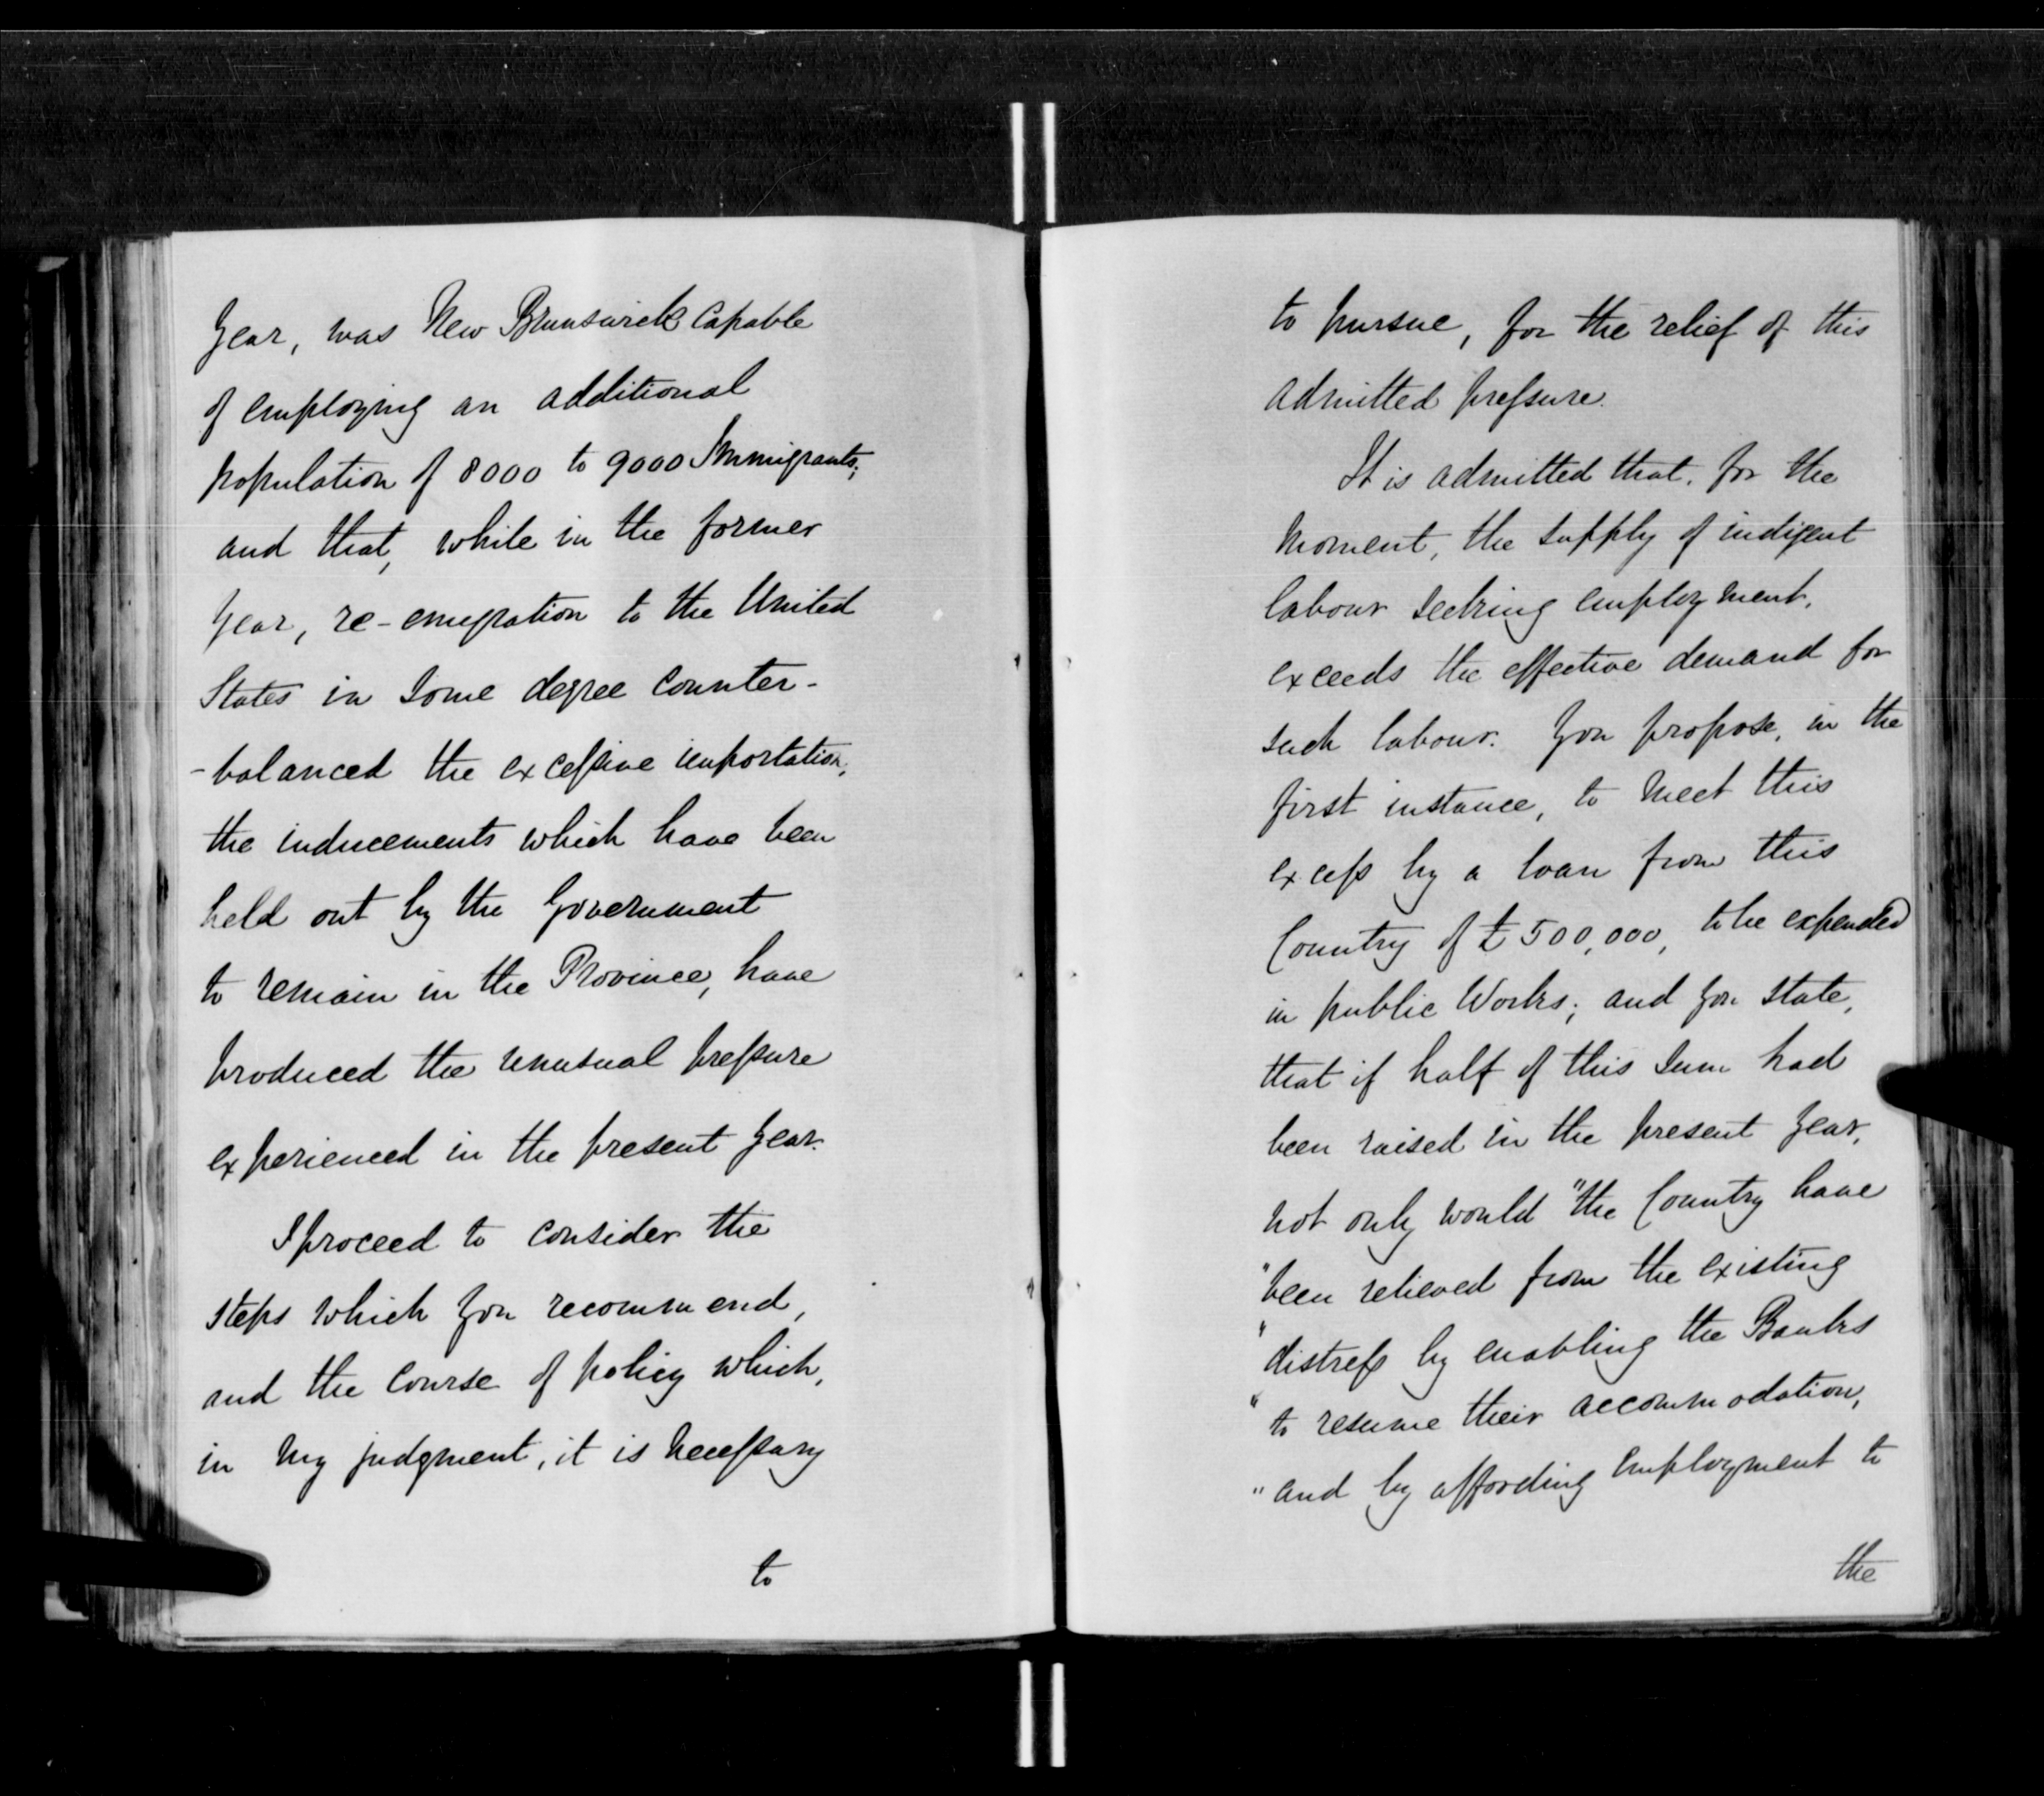 Year, was New Brunswick capable
of employing an additional
population of 8000 to 9000 Immigrants;
and that, while in the former
Year, re-emigration to the United
States in some degree counter-
-balanced the excessive importation,
the inducements which have been
held out by the Government
to remain in the Province, have
produced the unusual pressure
experienced in the present Year.
I proceed to consider the
steps which you recommend,
and the course of policy which,
in my judgment, it is necessary
to
to pursue, for the relief of this
admitted pressure.
It is admitted that, for the
moment, the supply of indigent
labour seeking employment,
exceeds the effective demand for
such labour. You propose, in the
first instance, to meet this
excess by a loan from this
Country of £500,000, to be expended
in public Works; and you state,
that if half of this sum had
been raised in the present Year,
not only would "the Country have
"been relieved from the existing
"distress by enabling the Banks
"to resume their accommodation,
"and by affording employment to
the